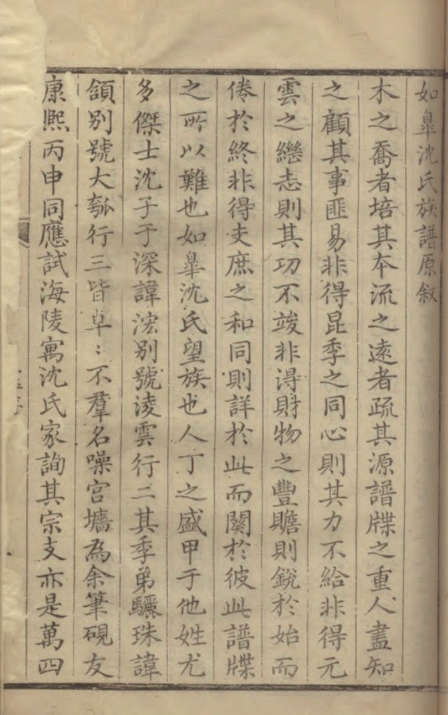 如臯沈氏族譜原敘
木之喬者培其本流之遠者疏其源譜牒之重人盡知
之顧其事匪易非得昆季之同心則其力不給非得元
雲之繼志則其功不竣非得財物之豐贍則銳於始而
倦於終非得支庶之和同則詳於此而闕於彼此譜牒
之所以難也如臯沈氏望族也人丁之盛甲于他姓尤
多傑士沈子于深諱浤別號淩雲行二其季弟驪珠諱
頷別號大瓠行三皆卓〻不羣名噪宮墻為余筆硯友
康熈丙申同應試海陵寓沈氏家詢其宗支亦是萬四